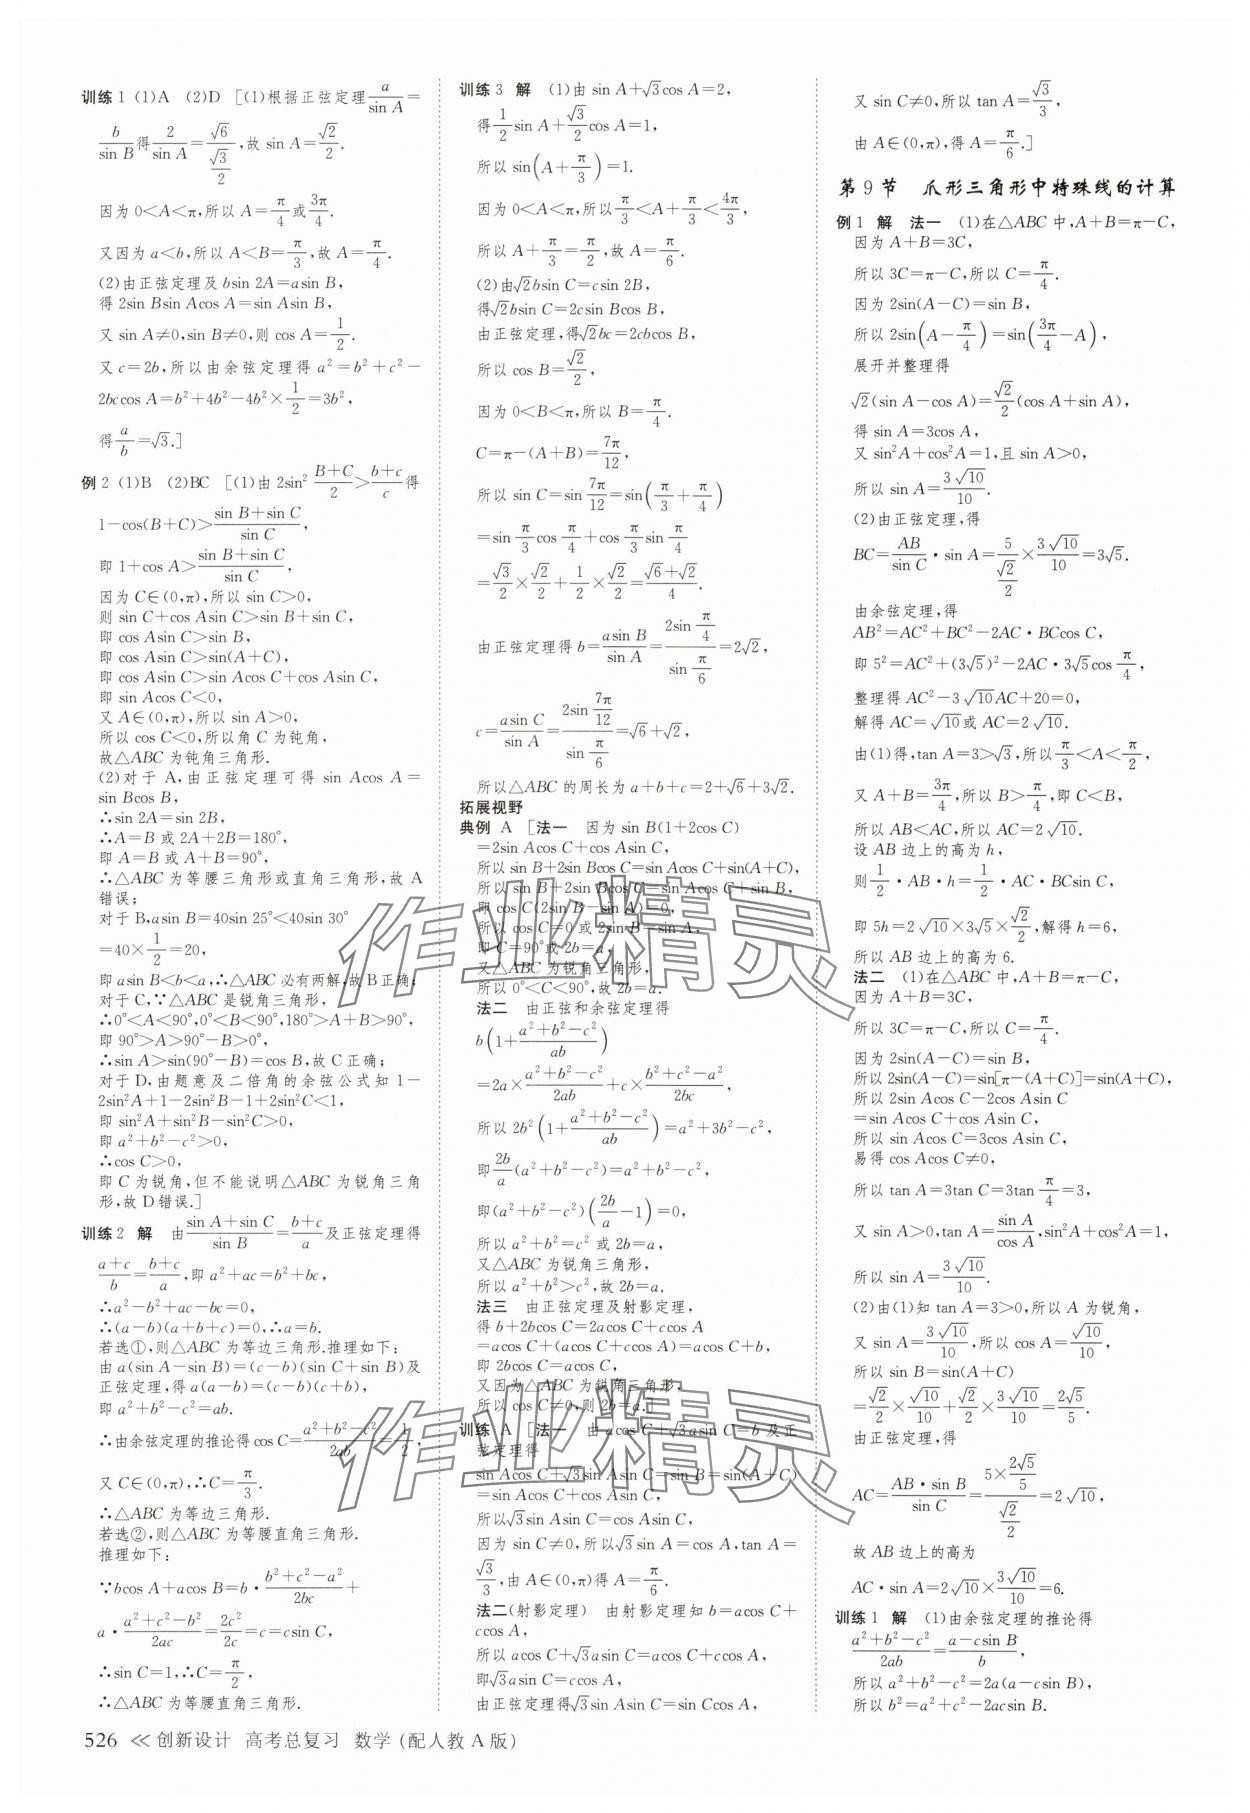 训练1 (1)A (2)D [(1)根据正弦定理a/sin A=
b/sin B得2/sin A=√6/(√3/2),故 sin A=√2/2.
因为 0<A<π,所以 A=π/4或3π/4.
又因为 a<b,所以 A<B=π/3,故 A=π/4.
(2)由正弦定理及 bsin 2A=asin B,
得 2sin Bsin Acos A=sin Asin B,
又 sin A≠0,sin B≠0,则 cos A=1/2.
又 c=2b,所以由余弦定理得 a²=b²+c²-
2bccos A=b²+4b²-4b²×1/2=3b²,
得a/b=√3.]
例2 (1)B (2)BC [(1)由 2sin² (B+C)/2>(b+c)/c得
1-cos(B+C)>(sin B+sin C)/sin C,
即 1+cos A>(sin B+sin C)/sin C,
因为 C∈(0,π),所以 sin C>0,
则 sin C+cos Asin C>sin B+sin C,
即 cos Asin C>sin B,
即 cos Asin C>sin(A+C),
即 cos Asin C>sin Acos C+cos Asin C,
即 sin Acos C<0,
又 A∈(0,π),所以 sin A>0,
所以 cos C<0,所以角 C 为钝角,
故△ABC 为钝角三角形.
(2)对于 A,由正弦定理可得 sin Acos A=
sin Bcos B,
∴sin 2A=sin 2B,
∴A=B 或 2A+2B=180°,
即 A=B 或 A+B=90°,
∴△ABC 为等腰三角形或直角三角形,故 A
错误;
对于 B,asin B=40sin 25°<40sin 30°
=40×1/2=20,
即 asin B<b<a,∴△ABC 必有两解,故 B 正确;
对于 C,∵△ABC 是锐角三角形,
∴0°<A<90°,0°<B<90°,180°>A+B>90°,
即 90°>A>90°-B>0°,
∴sin A>sin(90°-B)=cos B,故 C 正确;
对于 D,由题意及二倍角的余弦公式知 1-
2sin²A+1-2sin²B-1+2sin²C<1,
即 sin²A+sin²B-sin²C>0,
即 a²+b²-c²>0,
∴cos C>0,
即 C 为锐角,但不能说明△ABC 为锐角三角
形,故 D 错误.]
训练2 解 由(sin A+sin C)/sin B=(b+c)/a及正弦定理得
(a+c)/b=(b+c)/a,即 a²+ac=b²+bc,
∴a²-b²+ac-bc=0,
∴(a-b)(a+b+c)=0,∴a=b.
若选①,则△ABC 为等边三角形.推理如下:
由 a(sin A-sin B)=(c-b)(sin C+sin B)及
正弦定理,得 a(a-b)=(c-b)(c+b),
即 a²+b²-c²=ab.
∴由余弦定理的推论得 cos C=(a²+b²-c²)/2ab=1/2,
又 C∈(0,π),∴C=π/3.
∴△ABC 为等边三角形.
若选②,则△ABC 为等腰直角三角形.
推理如下:
∵bcos A+acos B=b·(b²+c²-a²)/2bc+
a·(a²+c²-b²)/2ac=2c²/2c=c=csin C,
∴sin C=1,∴C=π/2,
∴△ABC 为等腰直角三角形.
训练3 解 (1)由 sin A+√3cos A=2,
得1/2sin A+√3/2cos A=1,
所以 sin(A+π/3)=1.
因为 0<A<π,所以π/3<A+π/3<4π/3,
所以 A+π/3=π/2,故 A=π/6.
(2)由√2bsin C=csin 2B,
得√2bsin C=2csin Bcos B,
由正弦定理,得√2bc=2cbcos B,
所以 cos B=√2/2,
因为 0<B<π,所以 B=π/4.
C=π-(A+B)=7π/12,
所以 sin C=sin 7π/12=sin(π/3+π/4)
=sin π/3cos π/4+cos π/3sin π/4
=√3/2×√2/2+1/2×√2/2=(√6+√2)/4.
由正弦定理得 b=asin B/sin A=2sin π/4/sin π/6=2√2,
c=asin C/sin A=2sin 7π/12/sin π/6=√6+√2,
所以△ABC 的周长为 a+b+c=2+√6+3√2.
拓展视野
典例 A [法一 因为 sin B(1+2cos C)
=2sin Acos C+cos Asin C,
所以 sin B+2sin Bcos C=sin Acos C+sin(A+C),
所以 sin B+2sin Bcos C=sin Acos C+sin B,
即 cos C(2sin B-sin A)=0,
所以 cos C=0 或 2sin B=sin A,
即 C=90°或 2b=a,
又△ABC 为锐角三角形,
所以 0°<C<90°,故 2b=a.
法二 由正弦和余弦定理得
b(1+(a²+b²-c²)/ab)
=2a×(a²+b²-c²)/2ab+c×(b²+c²-a²)/2bc,
所以 2b²(1+(a²+b²-c²)/ab)=a²+3b²-c²,
即2b/a(a²+b²-c²)=a²+b²-c²,
即(a²+b²-c²)(2b/a-1)=0,
所以 a²+b²=c² 或 2b=a,
又△ABC 为锐角三角形,
所以 a²+b²>c²,故 2b=a.
法三 由正弦定理及射影定理,
得 b+2bcos C=2acos C+ccos A
=acos C+(acos C+ccos A)=acos C+b,
即 2bcos C=acos C,
又因为△ABC 为锐角三角形,
所以 cos C≠0,则 2b=a.]
训练 A [法一 由 acos C+√3asin C=b 及正
弦定理得
sin Acos C+√3sin Asin C=sin B=sin(A+C)
=sin Acos C+cos Asin C,
所以√3sin Asin C=cos Asin C,
因为 sin C≠0,所以√3sin A=cos A,tan A=
√3/3,由 A∈(0,π)得 A=π/6.
法二(射影定理) 由射影定理知 b=acos C+
ccos A,
所以 acos C+√3asin C=acos C+ccos A,
即√3asin C=ccos A,
由正弦定理得√3sin Asin C=sin Ccos A,
又 sin C≠0,所以 tan A=√3/3,
由 A∈(0,π),得 A=π/6.]
第9节 爪形三角形中特殊线的计算
例1 解 法一 (1)在△ABC 中,A+B=π-C,
因为 A+B=3C,
所以 3C=π-C,所以 C=π/4.
因为 2sin(A-C)=sin B,
所以 2sin(A-π/4)=sin(3π/4-A),
展开并整理得
√2(sin A-cos A)=√2/2(cos A+sin A),
得 sin A=3cos A,
又 sin²A+cos²A=1,且 sin A>0,
所以 sin A=3√10/10.
(2)由正弦定理,得
BC=AB/sin C·sin A=5/(√2/2)×3√10/10=3√5.
由余弦定理,得
AB²=AC²+BC²-2AC·BCcos C,
即 5²=AC²+(3√5)²-2AC·3√5cos π/4,
整理得 AC²-3√10AC+20=0,
解得 AC=√10或 AC=2√10.
由(1)得,tan A=3>√3,所以π/3<A<π/2,
又 A+B=3π/4,所以 B>π/4,即 C<B,
所以 AB<AC,所以 AC=2√10.
设 AB 边上的高为 h,
则1/2·AB·h=1/2·AC·BCsin C,
即 5h=2√10×3√5×√2/2,解得 h=6,
所以 AB 边上的高为 6.
法二 (1)在△ABC 中,A+B=π-C,
因为 A+B=3C,
所以 3C=π-C,所以 C=π/4.
因为 2sin(A-C)=sin B,
所以 2sin(A-C)=sin[π-(A+C)]=sin(A+C),
所以 2sin Acos C-2cos Asin C
=sin Acos C+cos Asin C,
所以 sin Acos C=3cos Asin C,
易得 cos Acos C≠0,
所以 tan A=3tan C=3tan π/4=3,
又 sin A>0,tan A=sin A/cos A,sin²A+cos²A=1,
所以 sin A=3√10/10.
(2)由(1)知 tan A=3>0,所以 A 为锐角,
又 sin A=3√10/10,所以 cos A=√10/10,
所以 sin B=sin(A+C)
=√2/2×√10/10+√2/2×3√10/10=2√5/5.
由正弦定理,得
AC=AB·sin B/sin C=(5×2√5/5)/(√2/2)=2√10,
故 AB 边上的高为
AC·sin A=2√10×3√10/10=6.
训练1 解 (1)由余弦定理的推论得
(a²+b²-c²)/2ab=(a-csin B)/b,
所以 a²+b²-c²=2a(a-csin B),
所以 b²=a²+c²-2acsin B.
526 ≪创新设计 高考总复习 数学(配人教 A 版)
作业精灵
作业精灵